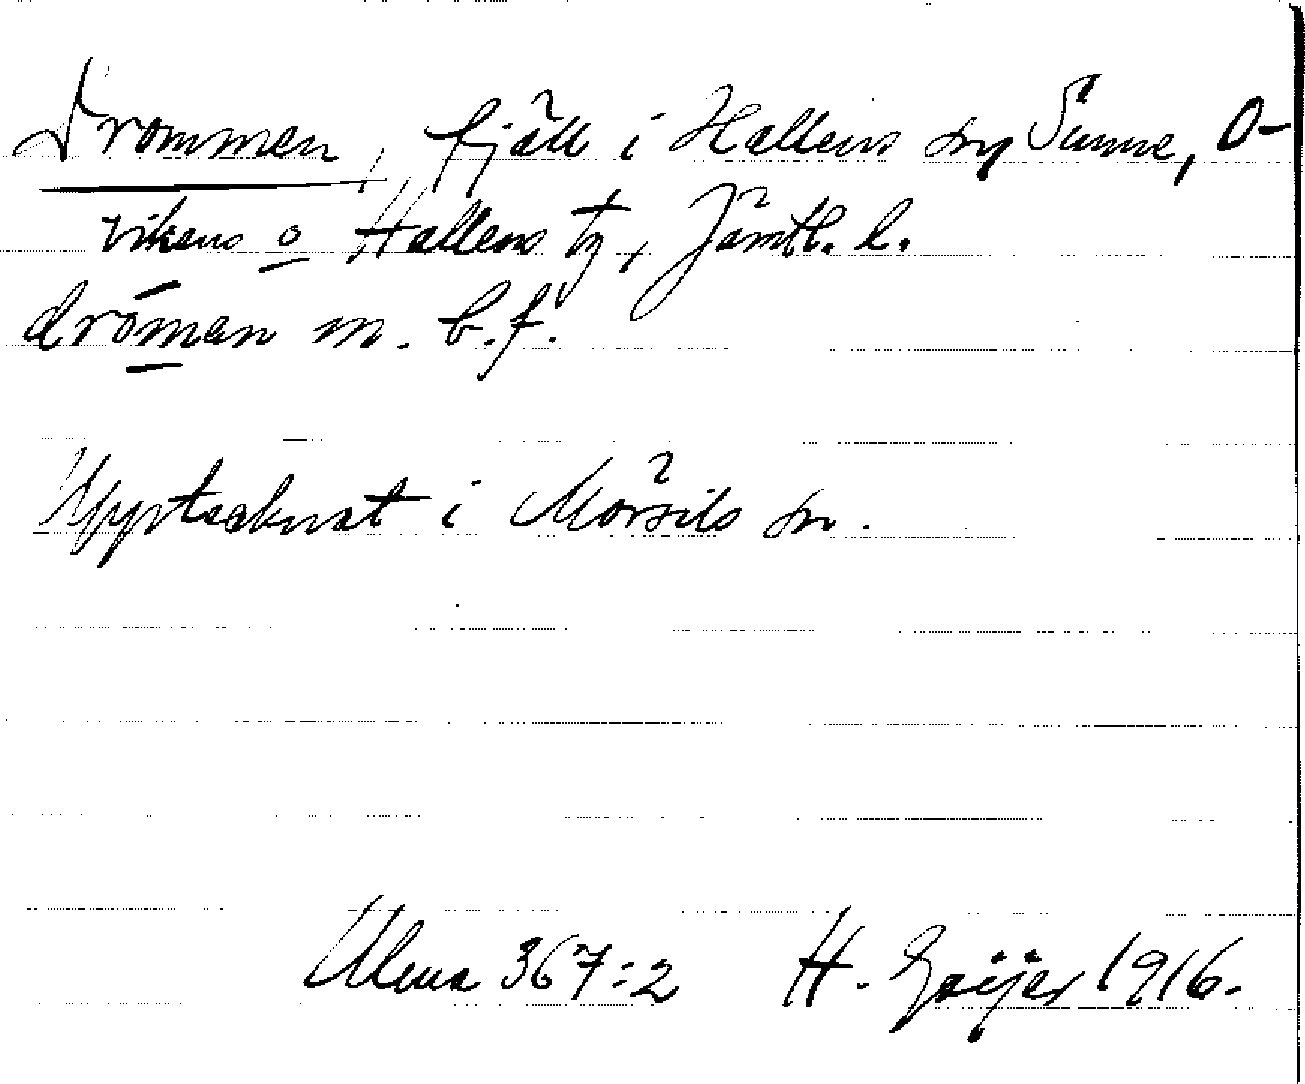 Drommen, fjäll i Hallens sn, Sunne, O-
vikens o Hallens tg, Jämtl. l.
droman m. b.f.
Upptecknat i Mörsils sn.
Ulma 367:2 H. Geijer 1916.